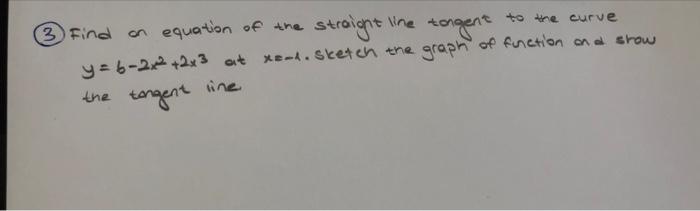 ③ Find an equation of the straight line tangent to the curve
y = 6-2x²+2x³ at x=-1. Sketch the graph of function and show
the tangent line